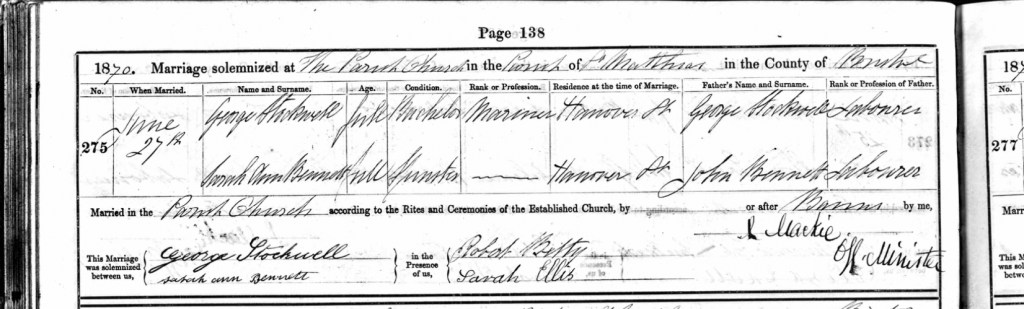 Page 138
1870. Marriage solemnized at The Parish Church in the Parish of St Matthias in the County of Bristol
No. When Married. Name and Surname. Age. Condition. Rank or Profession. Residence at the time of Marriage. Father's Name and Surname. Rank or Profession of Father.
275 June 27th George Stockwell full Bachelor Mariner Hanover St George Stockwell Labourer
Sarah Ann Bennett full Spinster Hanover St John Bennett Labourer
Married in the Parish Church according to the Rites and Ceremonies of the Established Church, by or after Banns by me,
Mackie
Off. Minister
This Marriage was solemnized between us, George Stockwell in the Presence of us, Robot Betty
Sarah Ann Bennett Sarah Ellis
187
No.
277
Marri
This M
was sol
betwe